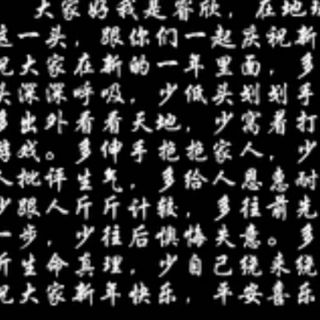 大家好我是睿欣，在地球
这一头，跟你们一起庆祝新
祝大家在新的一年里面，多
头深深呼吸，少低头划划手
多出外看看天地，少窝着打
游戏。多伸手抱抱家人，少
人批评生气，多给人恩惠耐
少跟人斤斤计较，多往前先
一步，少往后懊悔失意。多
新生命真理，少自己绕来绕
祝大家新年快乐，平安喜乐